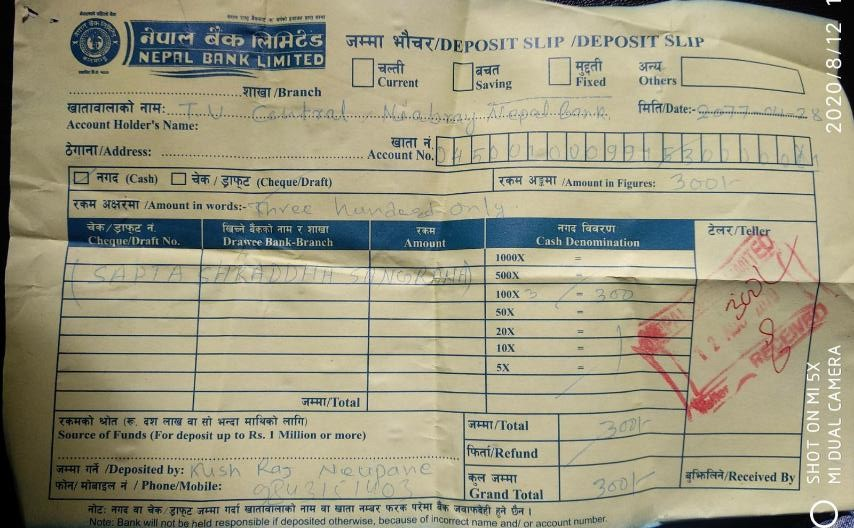 नेपाल बैंक लिमिटेड
NEPAL BANK LIMITED
जम्मा भौचर/DEPOSIT SLIP /DEPOSIT SLIP
चल्ती
Current
बचत
Saving
मुद्दती
Fixed
अन्य
Others
शाखा/Branch
खातावालाको नाम: T.U Central Nepal Bank.
Account Holder's Name:
मिति/Date:- 2077-04-28
ठेगाना/Address:
खाता नं.
Account No.
नगद (Cash) चेक / ड्राफ्ट (Cheque/Draft)
रकम अङ्कमा /Amount in Figures: 300/-
रकम अक्षरमा /Amount in words:- Three hundred only.
चेक/ड्राफ्ट नं.
Cheque/Draft No.
खिच्ने बैंकको नाम र शाखा
Drawee Bank-Branch
रकम
Amount
नगद विवरण
Cash Denomination
टेलर/Teller
1000X =
(SAPTA SHRADDHA SANGRAHA) 500X =
100X 3 = 300
50X
20X =
10X =
5X =
RECEIVED
जम्मा/Total
रकमको श्रोत (रू. दश लाख वा सो भन्दा माथिको लागि)
Source of Funds (For deposit up to Rs. 1 Million or more)
जम्मा/Total 300/-
फिर्ता/Refund
कूल जम्मा
Grand Total 300/-
जम्मा गर्ने /Deposited by: Kush Raj Neupane
फोन/ मोबाइल नं / Phone/Mobile: 9843151403
बुझिलिने/Received By
नोट: नगद वा चेक/ड्राफ्ट जम्मा गर्दा खातावालाको नाम वा खाता नम्बर फरक परेमा बैंक जवाफदेही हुने छैन ।
Note: Bank will not be held responsible if deposited otherwise, because of incorrect name and/ or account number.
2020/8/12 1
SHOT ON MI 5X
MI DUAL CAMERA